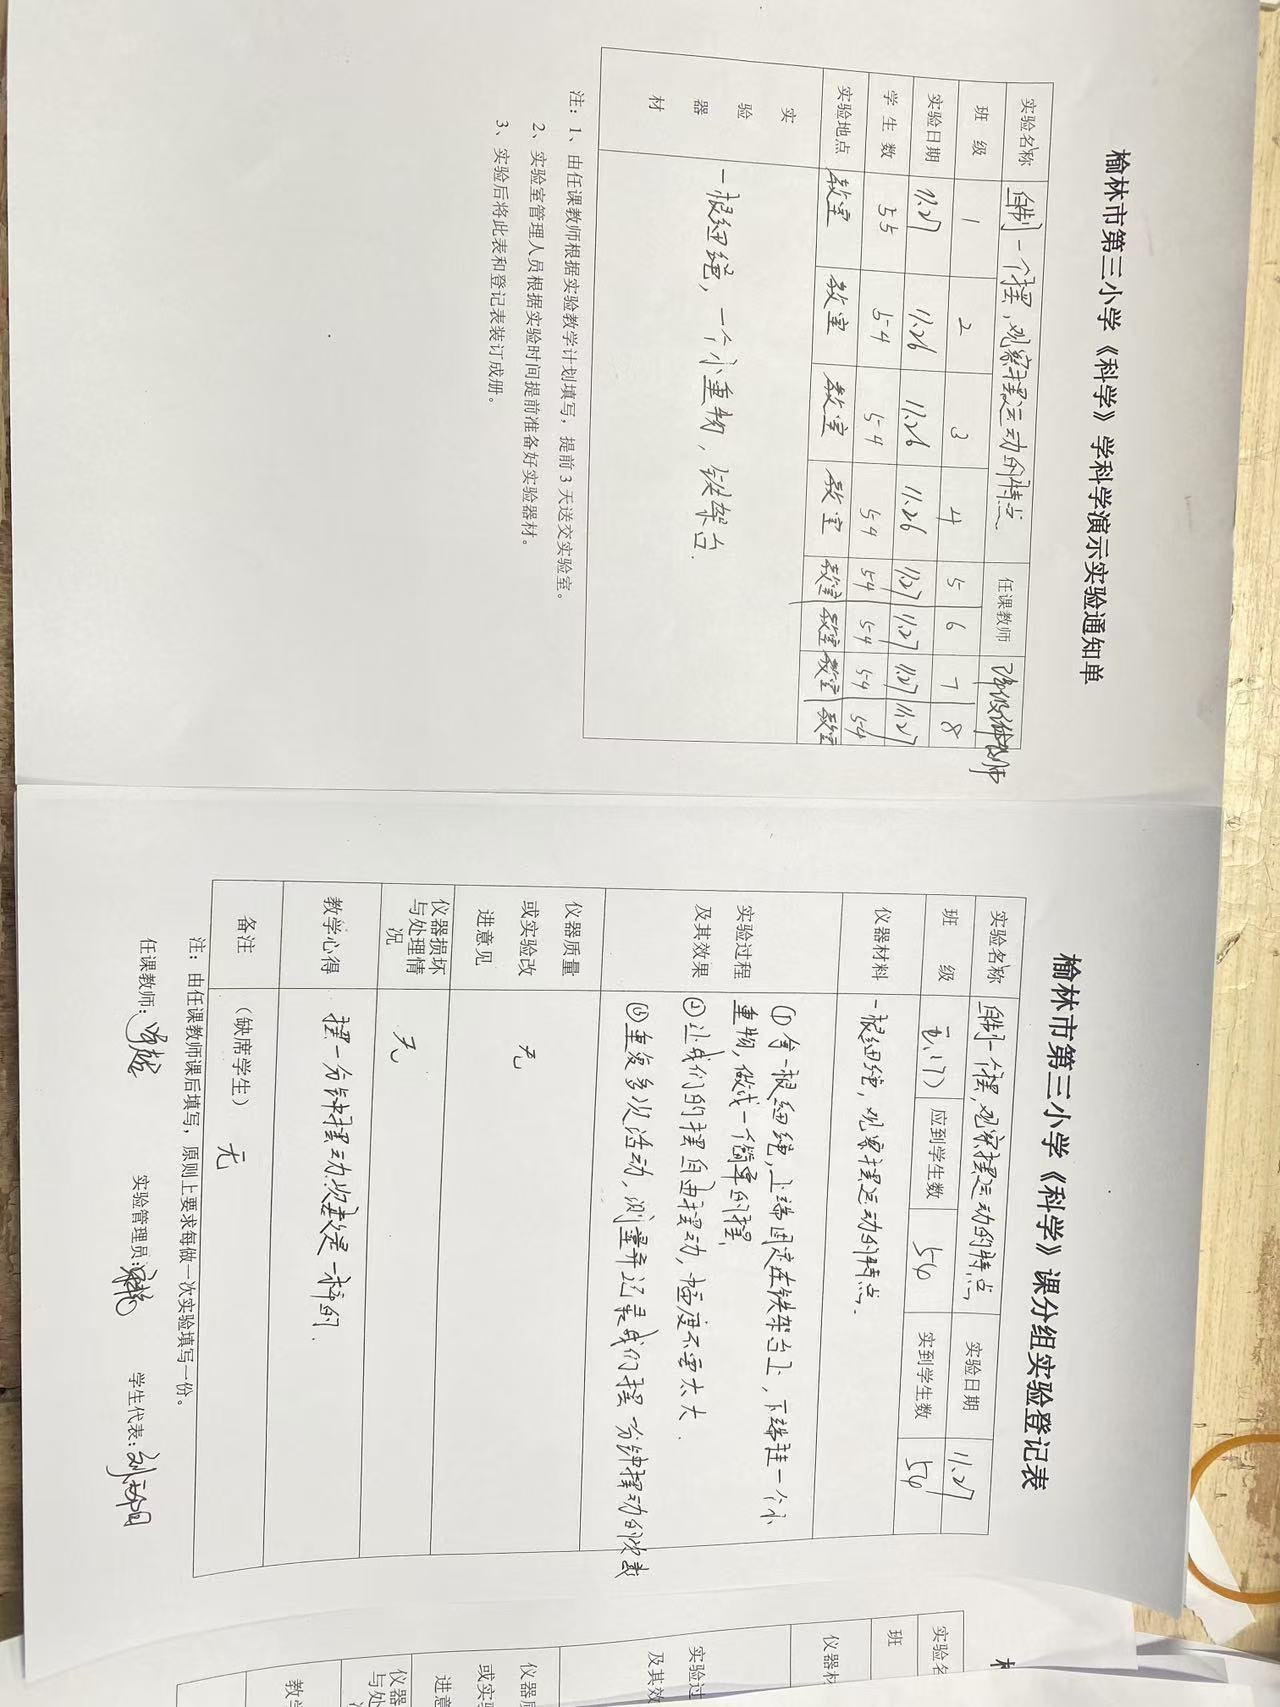 榆林市第三小学《科学》学科学演示实验通知单
实验名称 自制一个摆，观察摆运动的特点 任课教师
班 级 1 2 3 4 5 6 7 8
实验日期 11.27 11.26 11.26 11.26 11.27 11.27 11.27 11.27
学 生 数 55 54 54 54 54 54 54 54
实验地点 教室 教室 教室 教室 教室 教室 教室 教室
实验器材 一根细绳，一个小重物，铁架台.
注：1、由任课教师根据实验教学计划填写，提前 3 天送交实验室。
2、实验室管理人员根据实验时间提前准备好实验器材。
3、实验后将此表和登记表装订成册。
榆林市第三小学《科学》课分组实验登记表
实验名称 自制一个摆，观察摆运动的特点 实验日期 11.27
班 级 应到学生数 54 实到学生数 54
仪器材料 一根细绳，观察摆运动的特点.
实验过程及其效果 ①拿一根细绳，上端固定在铁架台上，下端挂一个小
重物，做成一个简单的摆，
②让我们的摆自由摆动，幅度不要太大.
③重复多次活动，测量并记录我们摆一分钟摆动的次数
仪器质量或实验改进意见 无
仪器损坏与处理情况 无
教学心得 摆一分钟摆动次数是一样的.
备注 （缺席学生） 无
注：由任课教师课后填写，原则上要求每做一次实验填写一份。
任课教师： 实验管理员： 学生代表：
实验名
班
仪器材
实验过
及其效
仪器质
或实验
进意
仪器
与处
教学